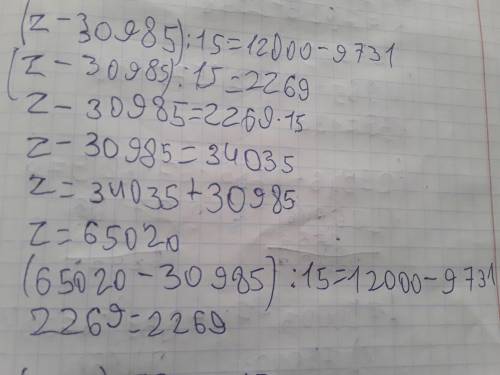 (z-30985):15=12000-9731
(z-30985):15=2269
z-30985=2269·15
z-30985=34035
z=34035+30985
z=65020
(65020-30985):15=12000-9731
2269=2269